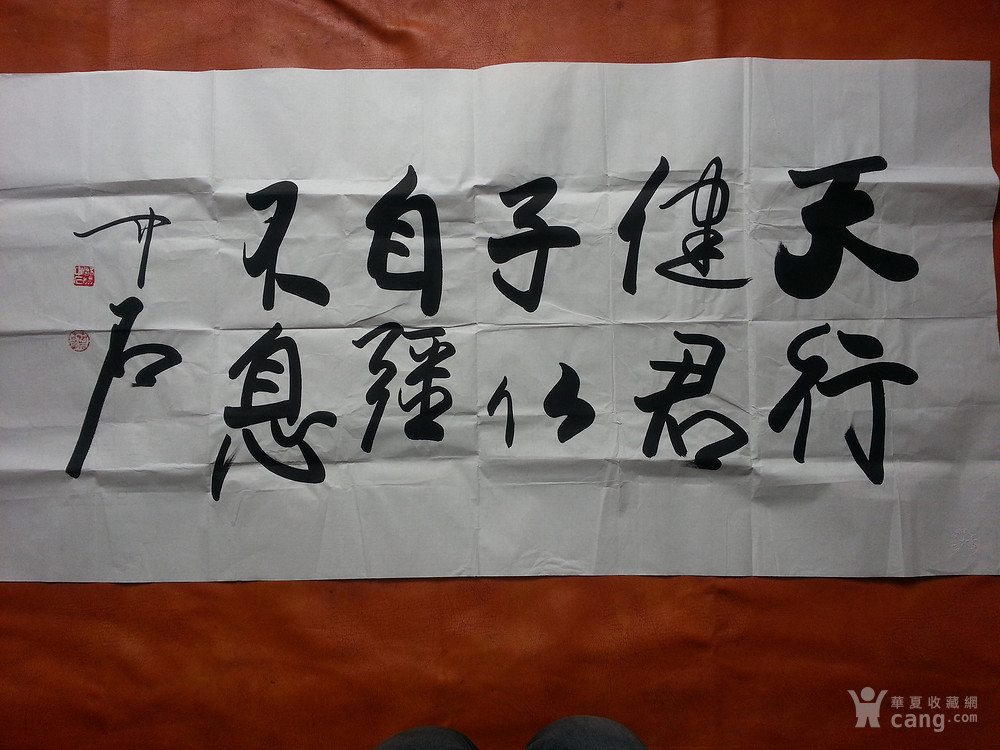 天行
健君
子以
自彊
不息
中石
華夏收藏網
cang.com